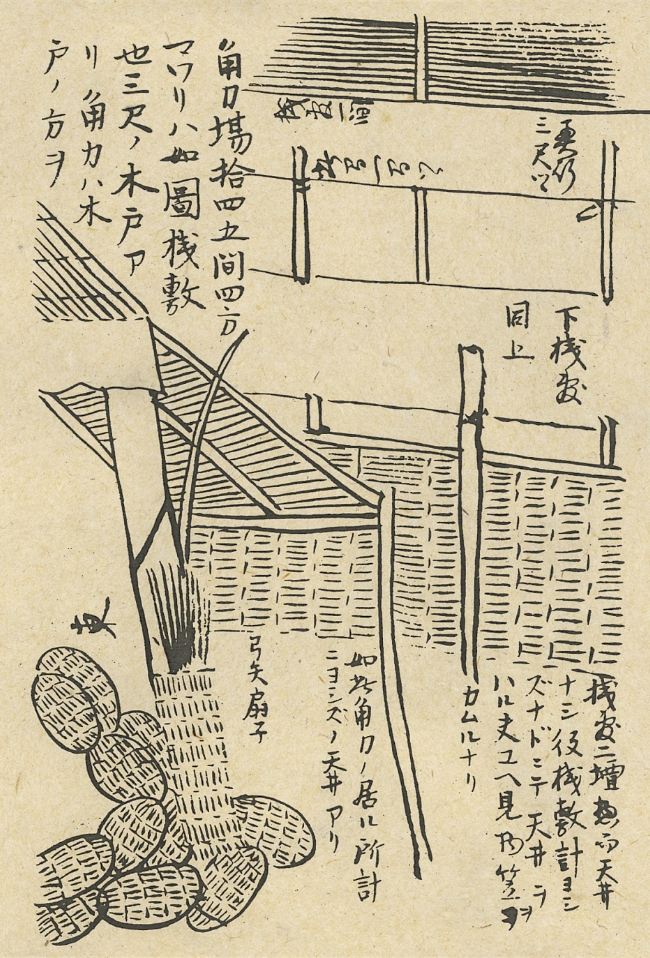 角力場拾四五間四方
マワリハ如圖桟敷
也三尺ノ木戸ア
リ角力ハ木
戸ノ方ヲ
三尺ツヽ
下桟敷
同上
桟敷二壇
天井
ナシ役桟敷計ヨシ
ズナドニテ天井ヲ
ハル夫ユヘ見乃笠ヲ
カムルナリ
如此角力ノ居ル所計
ニヨシズノ天井アリ
弓矢扇子